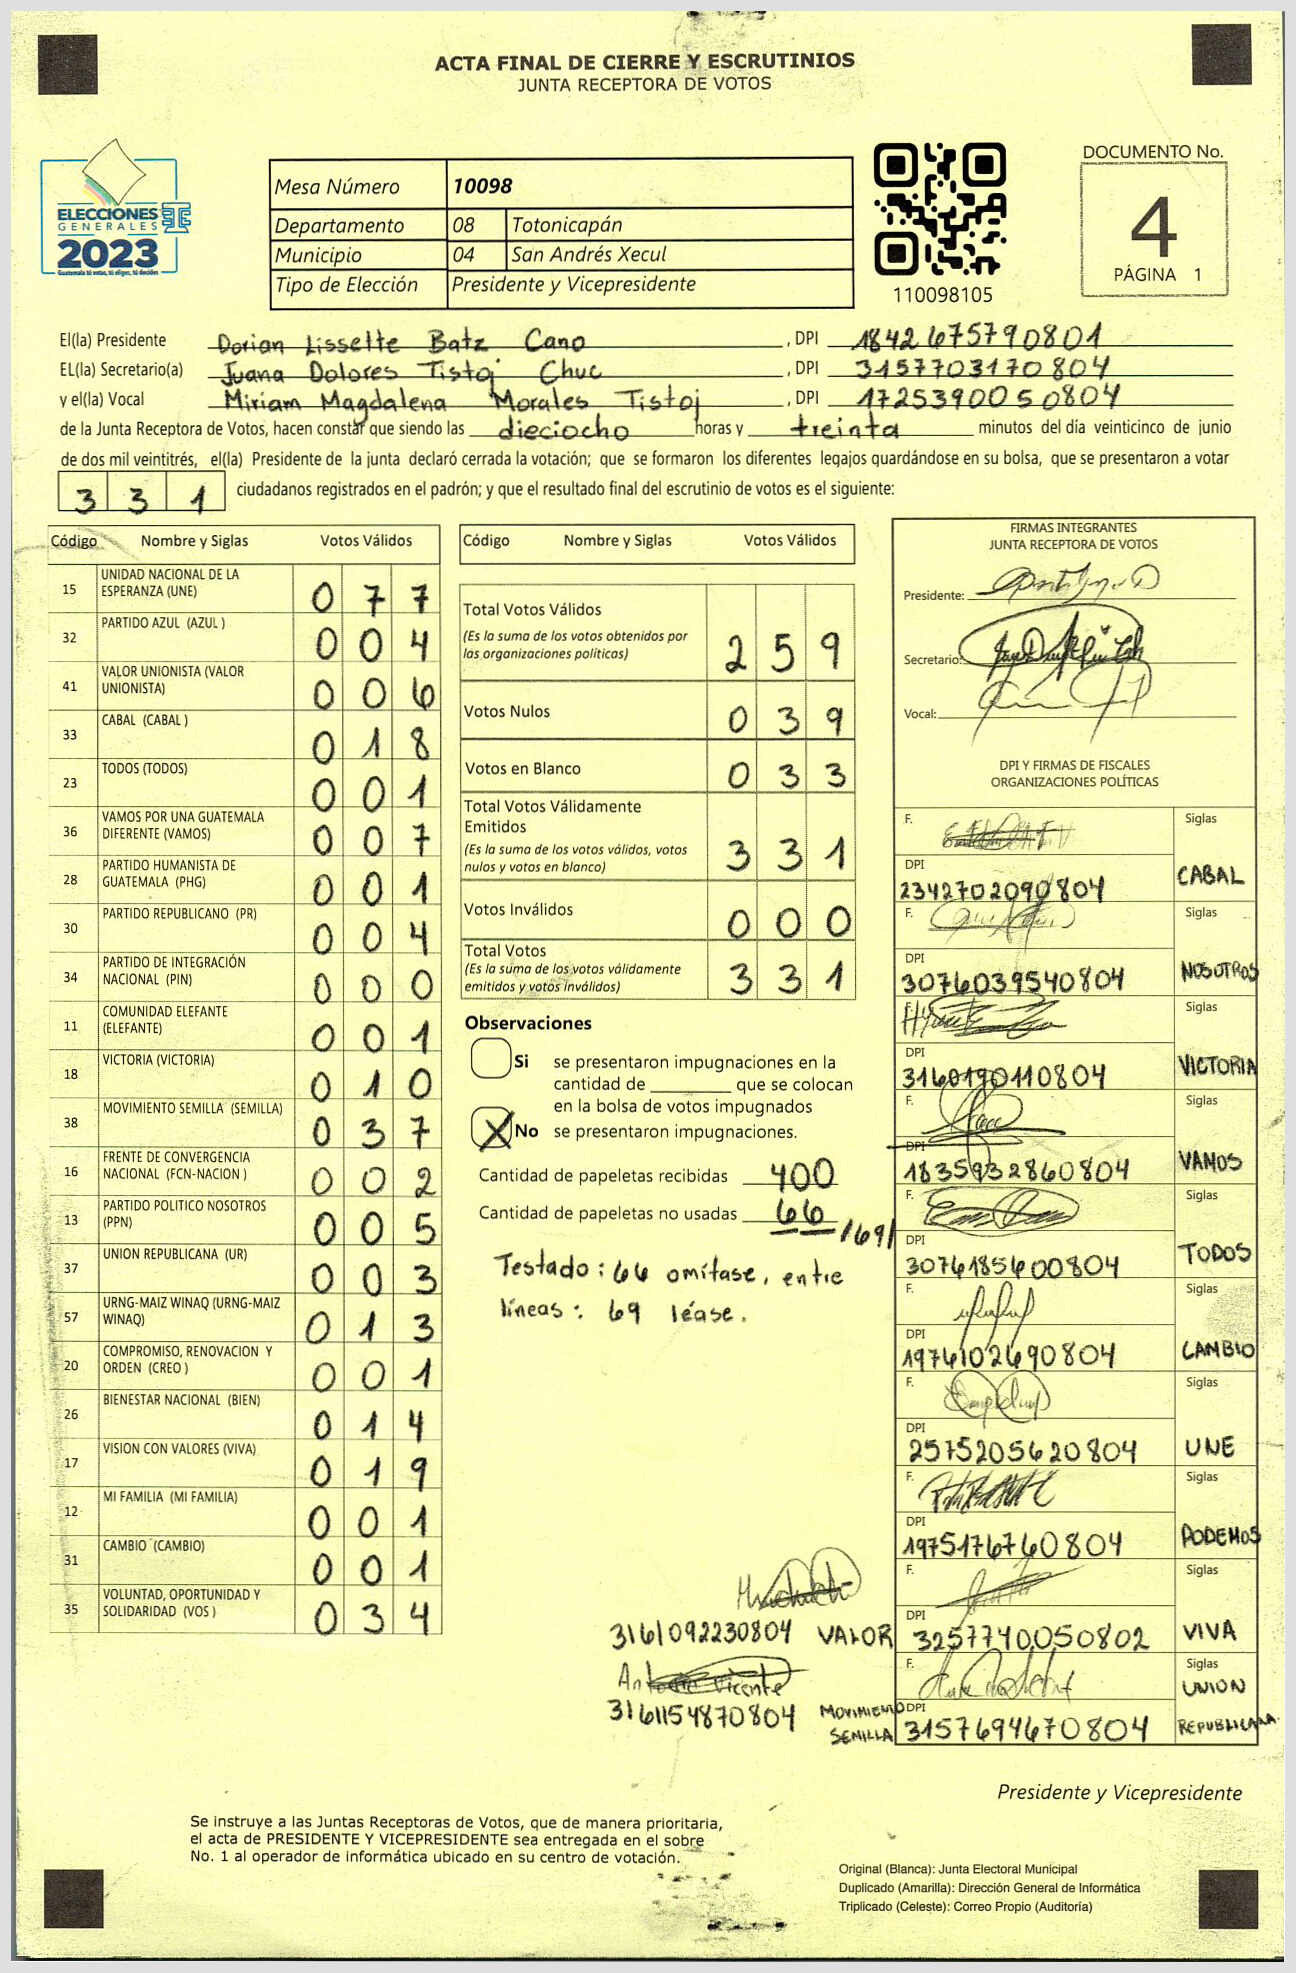 ACTA FINAL DE CIERRE Y ESCRUTINIOS
JUNTA RECEPTORA DE VOTOS
ELECCIONES
GENERALES
2023
Guatemala tú votas, tú eliges, tú decides
Mesa Número 10098
Departamento 08 Totonicapán
Municipio 04 San Andrés Xecul
Tipo de Elección Presidente y Vicepresidente
110098105
DOCUMENTO No.
4
PÁGINA 1
El(la) Presidente Dorian Lissette Batz Cano , DPI 1842675790801
EL(la) Secretario(a) Juana Dolores Tistoj Chuc , DPI 3157703170804
y el(la) Vocal Miriam Magdalena Morales Tistoj , DPI 1725390050804
de la Junta Receptora de Votos, hacen constar que siendo las dieciocho horas y treinta minutos del día veinticinco de junio
de dos mil veintitrés, el(la) Presidente de la junta declaró cerrada la votación; que se formaron los diferentes legajos guardándose en su bolsa, que se presentaron a votar
331 ciudadanos registrados en el padrón; y que el resultado final del escrutinio de votos es el siguiente:
Código Nombre y Siglas Votos Válidos
15 UNIDAD NACIONAL DE LA ESPERANZA (UNE) 077
32 PARTIDO AZUL (AZUL ) 004
41 VALOR UNIONISTA (VALOR UNIONISTA) 006
33 CABAL (CABAL ) 018
23 TODOS (TODOS) 001
36 VAMOS POR UNA GUATEMALA DIFERENTE (VAMOS) 007
28 PARTIDO HUMANISTA DE GUATEMALA (PHG) 001
30 PARTIDO REPUBLICANO (PR) 004
34 PARTIDO DE INTEGRACIÓN NACIONAL (PIN) 000
11 COMUNIDAD ELEFANTE (ELEFANTE) 001
18 VICTORIA (VICTORIA) 010
38 MOVIMIENTO SEMILLA (SEMILLA) 037
16 FRENTE DE CONVERGENCIA NACIONAL (FCN-NACION ) 002
13 PARTIDO POLITICO NOSOTROS (PPN) 005
37 UNION REPUBLICANA (UR) 003
57 URNG-MAIZ WINAQ (URNG-MAIZ WINAQ) 013
20 COMPROMISO, RENOVACION Y ORDEN (CREO ) 001
26 BIENESTAR NACIONAL (BIEN) 014
17 VISION CON VALORES (VIVA) 019
12 MI FAMILIA (MI FAMILIA) 001
31 CAMBIO (CAMBIO) 001
35 VOLUNTAD, OPORTUNIDAD Y SOLIDARIDAD (VOS ) 034
Código Nombre y Siglas Votos Válidos
Total Votos Válidos
(Es la suma de los votos obtenidos por
las organizaciones políticas) 259
Votos Nulos 039
Votos en Blanco 033
Total Votos Válidamente
Emitidos
(Es la suma de los votos válidos, votos
nulos y votos en blanco) 331
Votos Inválidos 000
Total Votos
(Es la suma de los votos válidamente
emitidos y votos inválidos) 331
Observaciones
Si se presentaron impugnaciones en la
cantidad de ________ que se colocan
en la bolsa de votos impugnados
X No se presentaron impugnaciones.
Cantidad de papeletas recibidas 400
Cantidad de papeletas no usadas 66 /69/
Testado: 66 omítase, entre
líneas: 69 léase.
3161092230804 VALOR
Antonio Vicente
3161154870804 MOVIMIENTO
SEMILLA
FIRMAS INTEGRANTES
JUNTA RECEPTORA DE VOTOS
Presidente:
Secretario:
Vocal:
DPI Y FIRMAS DE FISCALES
ORGANIZACIONES POLÍTICAS
F. Siglas
DPI 2342702090804 CABAL
F. Siglas
DPI 3076039540804 NOSOTROS
F. Siglas
DPI 3160190110804 VICTORIA
F. Siglas
DPI 1835932860804 VAMOS
F. Siglas
DPI 3076185600804 TODOS
F. Siglas
DPI 1976102690804 CAMBIO
F. Siglas
DPI 2575205620804 UNE
F. Siglas
DPI 1975176760804 PODEMOS
F. Siglas
DPI 3257740050802 VIVA
F. Siglas UNION
DPI 3157694670804 REPUBLICANA
Presidente y Vicepresidente
Se instruye a las Juntas Receptoras de Votos, que de manera prioritaria,
el acta de PRESIDENTE Y VICEPRESIDENTE sea entregada en el sobre
No. 1 al operador de informática ubicado en su centro de votación.
Original (Blanca): Junta Electoral Municipal
Duplicado (Amarilla): Dirección General de Informática
Triplicado (Celeste): Correo Propio (Auditoría)